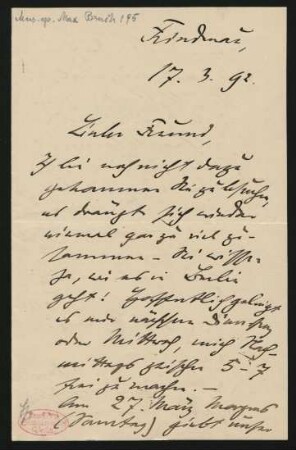 Mus. ep. Max Bruch 195
Friedenau,
17. 3. 92.
Lieber Freund,
Ich bin noch nicht dazu
gekommen Sie zu besuchen,
es drängt sich wieder
einmal gar zu viel zu-
sammen. – Sie wissen
ja, wie es in Berlin
geht! Hoffentlich gelingt
es mir nächsten Dienstag
oder Mittwoch, mich Nach-
mittags zwischen 5–7
frei zu machen. –
Am 27. März Morgens
(Sonntag) giebt unser